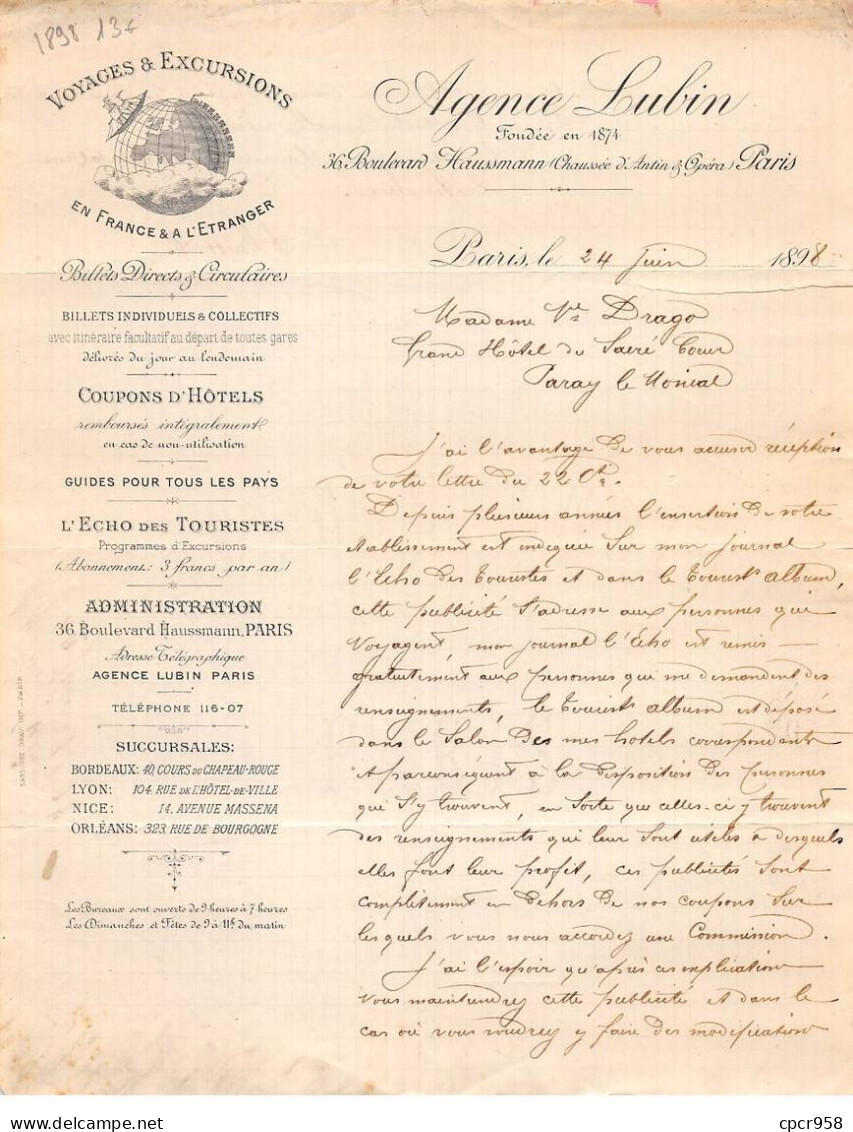 1898 13€
VOYAGES & EXCURSIONS
EN FRANCE & A L'ETRANGER
Billets Directs & Circulaires
BILLETS INDIVIDUELS & COLLECTIFS
avec itinéraire facultatif au départ de toutes gares
délivrés du jour au lendemain
COUPONS D'HÔTELS
remboursés intégralement
en cas de non-utilisation
GUIDES POUR TOUS LES PAYS
L'ECHO DES TOURISTES
Programmes d'Excursions
(Abonnement: 3 francs par an)
ADMINISTRATION
36, Boulevard Haussmann, PARIS
Adresse Télégraphique
AGENCE LUBIN PARIS
TÉLÉPHONE 116-07
SUCCURSALES:
BORDEAUX: 40, COURS DU CHAPEAU-ROUGE
LYON: 104, RUE DE L'HÔTEL-DE-VILLE
NICE: 14, AVENUE MASSENA
ORLÉANS: 323, RUE DE BOURGOGNE
Les Bureaux sont ouverts de 9 heures à 7 heures
Les Dimanches et Fêtes de 9 à 11h du matin
Agence Lubin
Fondée en 1874
36, Boulevard Haussmann (Chaussée d'Antin & Opéra) Paris
Paris, le 24 Juin 1898
Madame Vve Drago
Grand Hôtel du Sacré Coeur
Paray le Monial
J'ai l'avantage de vous accuser réception
de votre lettre du 22 Ct.
Depuis plusieurs années l'insertion de votre
établissement est indiquée sur mon journal
l'Echo des Touristes et dans le Tourist album,
cette publicité s'adresse aux personnes qui
voyagent, mon journal l'Echo est remis
gratuitement aux personnes qui me demandent des
renseignements, le Tourist album est déposé
dans le Salon des mes hotels correspondants
et par conséquent à la disposition des personnes
qui s'y trouvent, en sorte que celles-ci y trouvent
des renseignements qui leur sont utiles & desquels
elles font leur profit, ces publicités sont
complètement en dehors de nos coupons sur
lesquels vous nous accordez une Commission.
J'ai l'espoir qu'après ces explications
vous maintiendrez cette publicité et dans le
cas où vous voudriez y faire des modifications
cpcr958